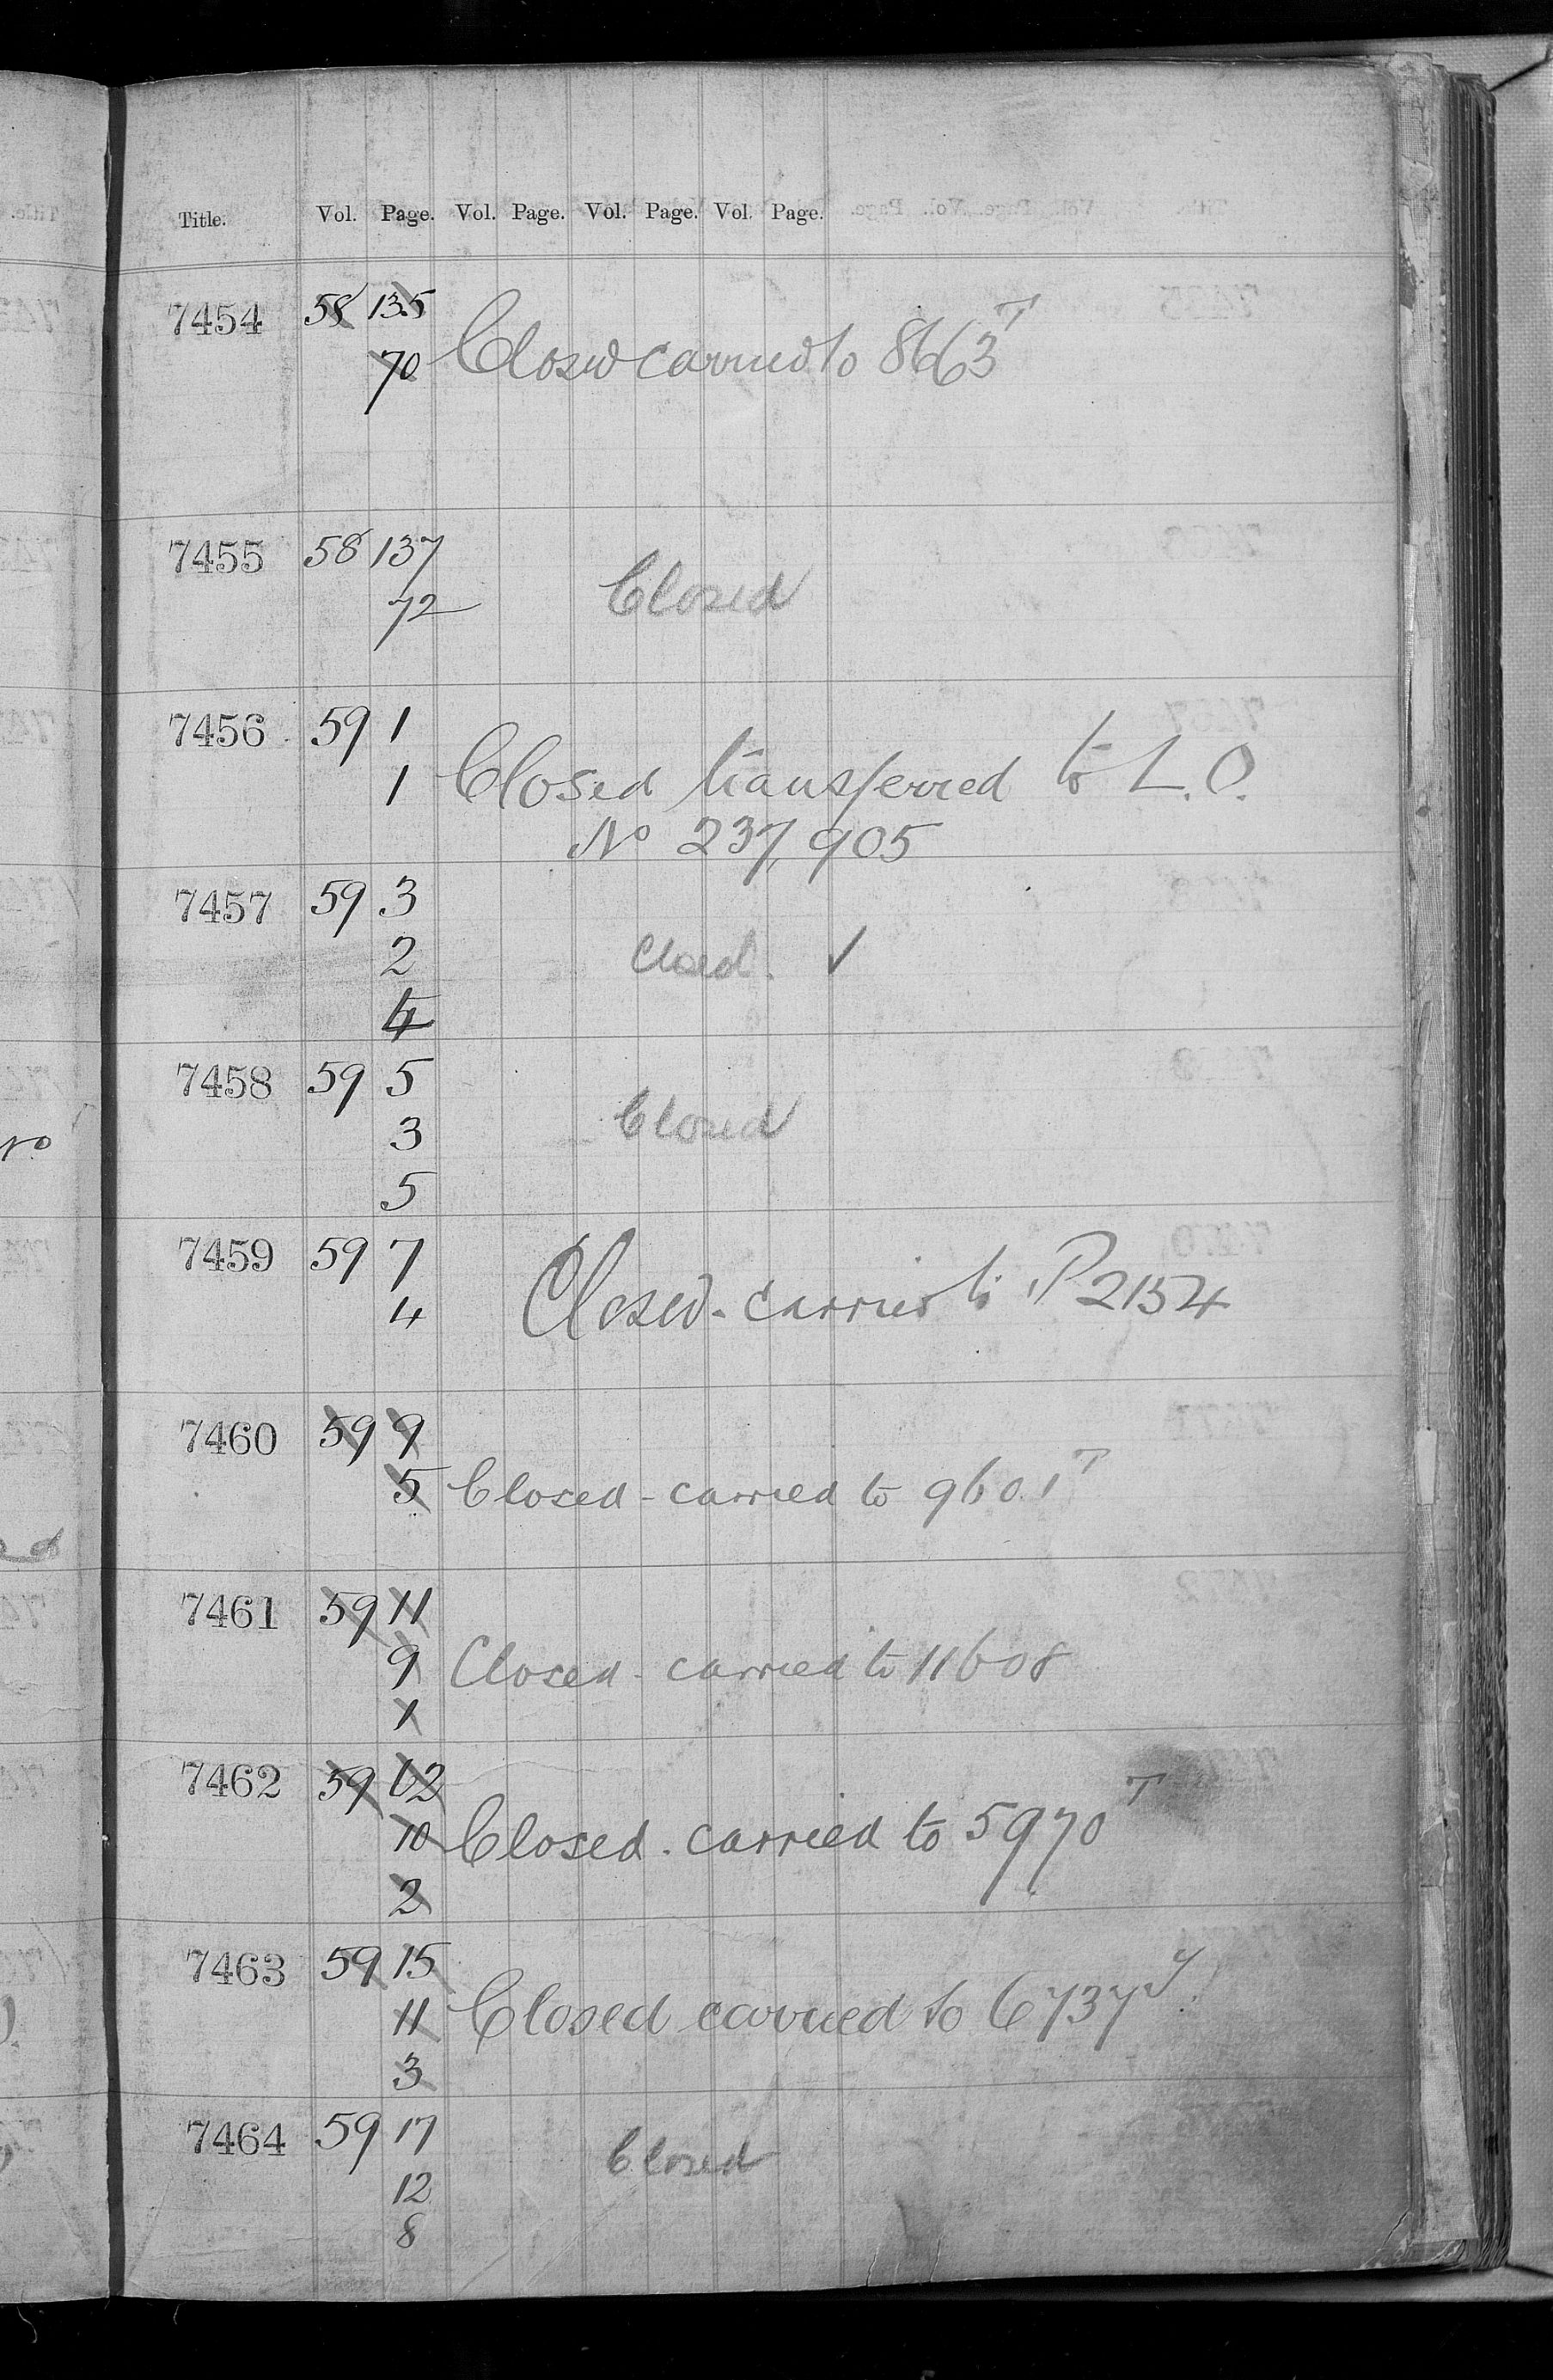 Title. Vol. Page. Vol. Page. Vol. Page. Vol. Page.
7454 58 135
70 Closed carried to 8663 T
7455 58 137
72 Closed
7456 59 1
1 Closed transferred to L.O.
No 237,905
7457 59 3
2 Closed. ✓
4
7458 59 5
3 Closed
5
7459 59 7
4 Closed - carried to P 2154
7460 59 9
5 Closed - carried to 9601 T
7461 59 11
9 Closed - carried to 11608
1
7462 59
10 Closed - carried to 5970 T
2
7463 59 15
11 Closed carried to 6737
3
7464 59 17
12 Closed
8